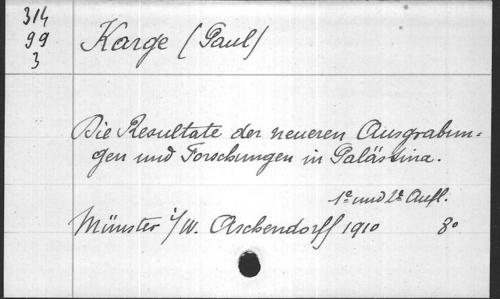 314
99
3
Karge (Paul)
Die Resultate der neueren Ausgrabun=
gen und Forschungen in Palästina.
1e und 2e Aufl.
Münster i/W. Aschendorff 1910 8o